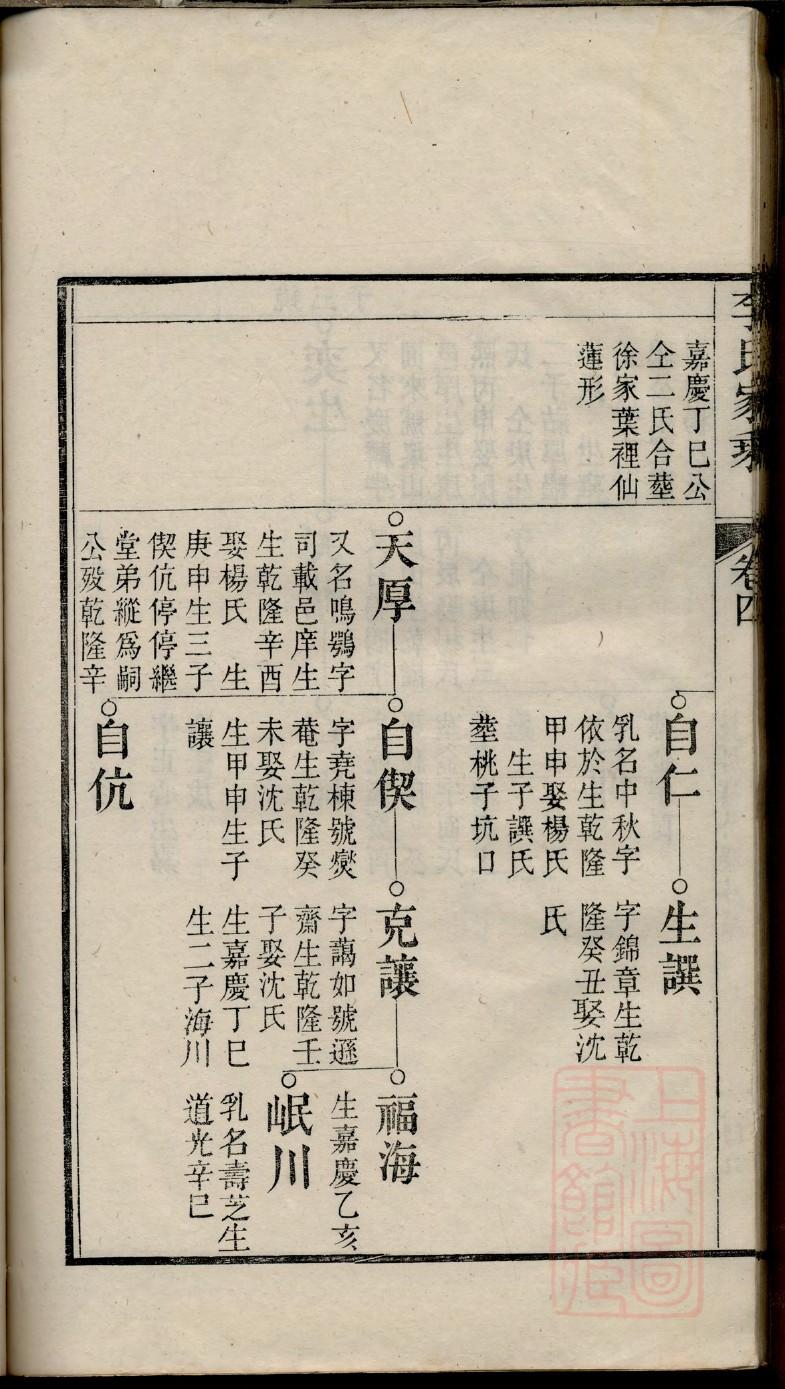 李氏家乘
卷四
嘉慶丁巳公
仝二氏合塟
徐家葉裡仙
蓮形
自仁
乳名中秋字
依於生乾隆
甲申娶楊氏
生子譔氏
塟桃子坑口
生譔
字錦章生乾
隆癸丑娶沈
氏
天厚
又名鳴鶚字
司載邑庠生
生乾隆辛酉
娶楊氏　生
庚申生三子
偰伉停停繼
堂弟縱爲嗣
公歿乾隆辛
自偰
字堯棟號爕
菴生乾隆癸
未娶沈氏
生甲申生子
讓
克讓
字藹如號遜
齋生乾隆壬
子娶沈氏
生嘉慶丁巳
生二子海川
福海
生嘉慶乙亥
岷川
乳名壽芝生
道光辛巳
自伉
上海圖
書館藏